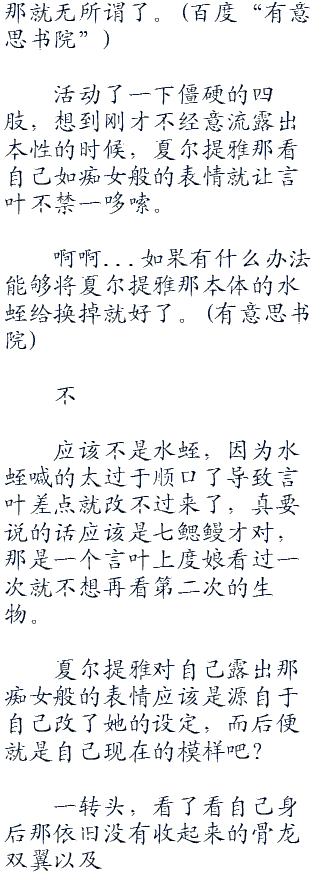 那就无所谓了。(百度“有意
思书院”)
活动了一下僵硬的四
肢，想到刚才不经意流露出
本性的时候，夏尔提雅那看
自己如痴女般的表情就让言
叶不禁一哆嗦。
啊啊...如果有什么办法
能够将夏尔提雅那本体的水
蛭给换掉就好了。(有意思书
院)
不
应该不是水蛭，因为水
蛭喊的太过于顺口了导致言
叶差点就改不过来了，真要
说的话应该是七鳃鳗才对，
那是一个言叶上度娘看过一
次就不想再看第二次的生
物。
夏尔提雅对自己露出那
痴女般的表情应该是源自于
自己改了她的设定，而后便
就是自己现在的模样吧？
一转头，看了看自己身
后那依旧没有收起来的骨龙
双翼以及